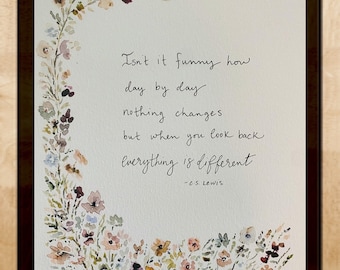 Isn't it funny how
day by day
nothing changes
but when you look back
everything is different
-C.S. LEWIS